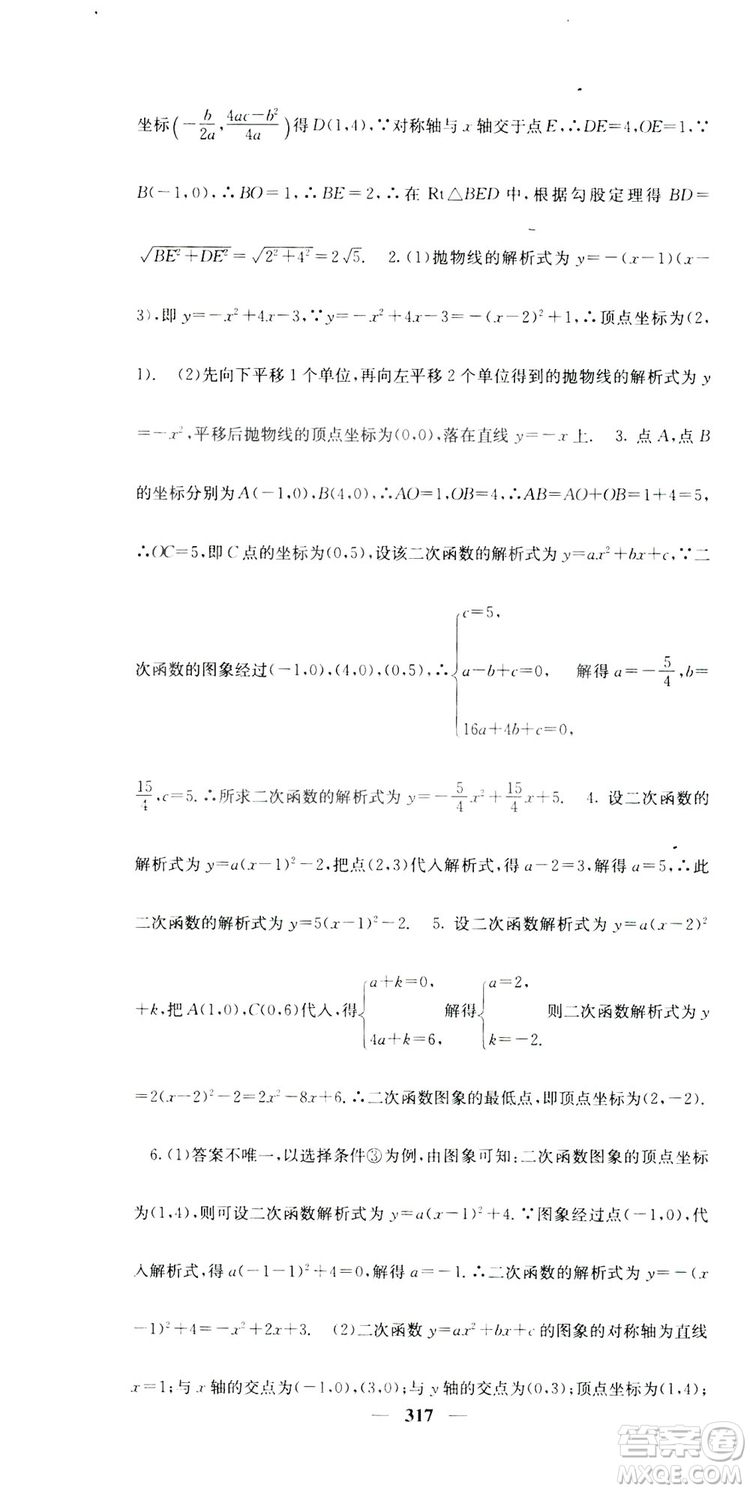 坐标(−b/2a, 4ac−b²/4a)得 D(1,4),∵对称轴与 x 轴交于点 E,∴DE=4,OE=1,∵
B(−1,0),∴BO=1,∴BE=2,∴在 Rt△BED 中,根据勾股定理得 BD=
√(BE²+DE²)=√(2²+4²)=2√5. 2. (1)抛物线的解析式为 y=−(x−1)(x−
3),即 y=−x²+4x−3,∵y=−x²+4x−3=−(x−2)²+1,∴顶点坐标为(2,
1). (2)先向下平移 1 个单位,再向左平移 2 个单位得到的抛物线的解析式为 y
=−x²,平移后抛物线的顶点坐标为(0,0),落在直线 y=−x 上. 3. 点 A,点 B
的坐标分别为 A(−1,0),B(4,0),∴AO=1,OB=4,∴AB=AO+OB=1+4=5,
∴OC=5,即 C 点的坐标为(0,5),设该二次函数的解析式为 y=ax²+bx+c,∵二
次函数的图象经过(−1,0),(4,0),(0,5),∴{c=5, a−b+c=0, 16a+4b+c=0, 解得 a=−5/4,b=
15/4,c=5. ∴所求二次函数的解析式为 y=−5/4x²+15/4x+5. 4. 设二次函数的
解析式为 y=a(x−1)²−2,把点(2,3)代入解析式,得 a−2=3,解得 a=5,∴此
二次函数的解析式为 y=5(x−1)²−2. 5. 设二次函数解析式为 y=a(x−2)²
+k,把 A(1,0),C(0,6)代入,得{a+k=0, 4a+k=6, 解得{a=2, k=−2. 则二次函数解析式为 y
=2(x−2)²−2=2x²−8x+6. ∴二次函数图象的最低点,即顶点坐标为(2,−2).
6. (1)答案不唯一,以选择条件③为例,由图象可知:二次函数图象的顶点坐标
为(1,4),则可设二次函数解析式为 y=a(x−1)²+4. ∵图象经过点(−1,0),代
入解析式,得 a(−1−1)²+4=0,解得 a=−1. ∴二次函数的解析式为 y=−(x
−1)²+4=−x²+2x+3. (2)二次函数 y=ax²+bx+c 的图象的对称轴为直线
x=1;与 x 轴的交点为(−1,0),(3,0);与 y 轴的交点为(0,3);顶点坐标为(1,4);
— 317 —
答案圈
MXQE.COM